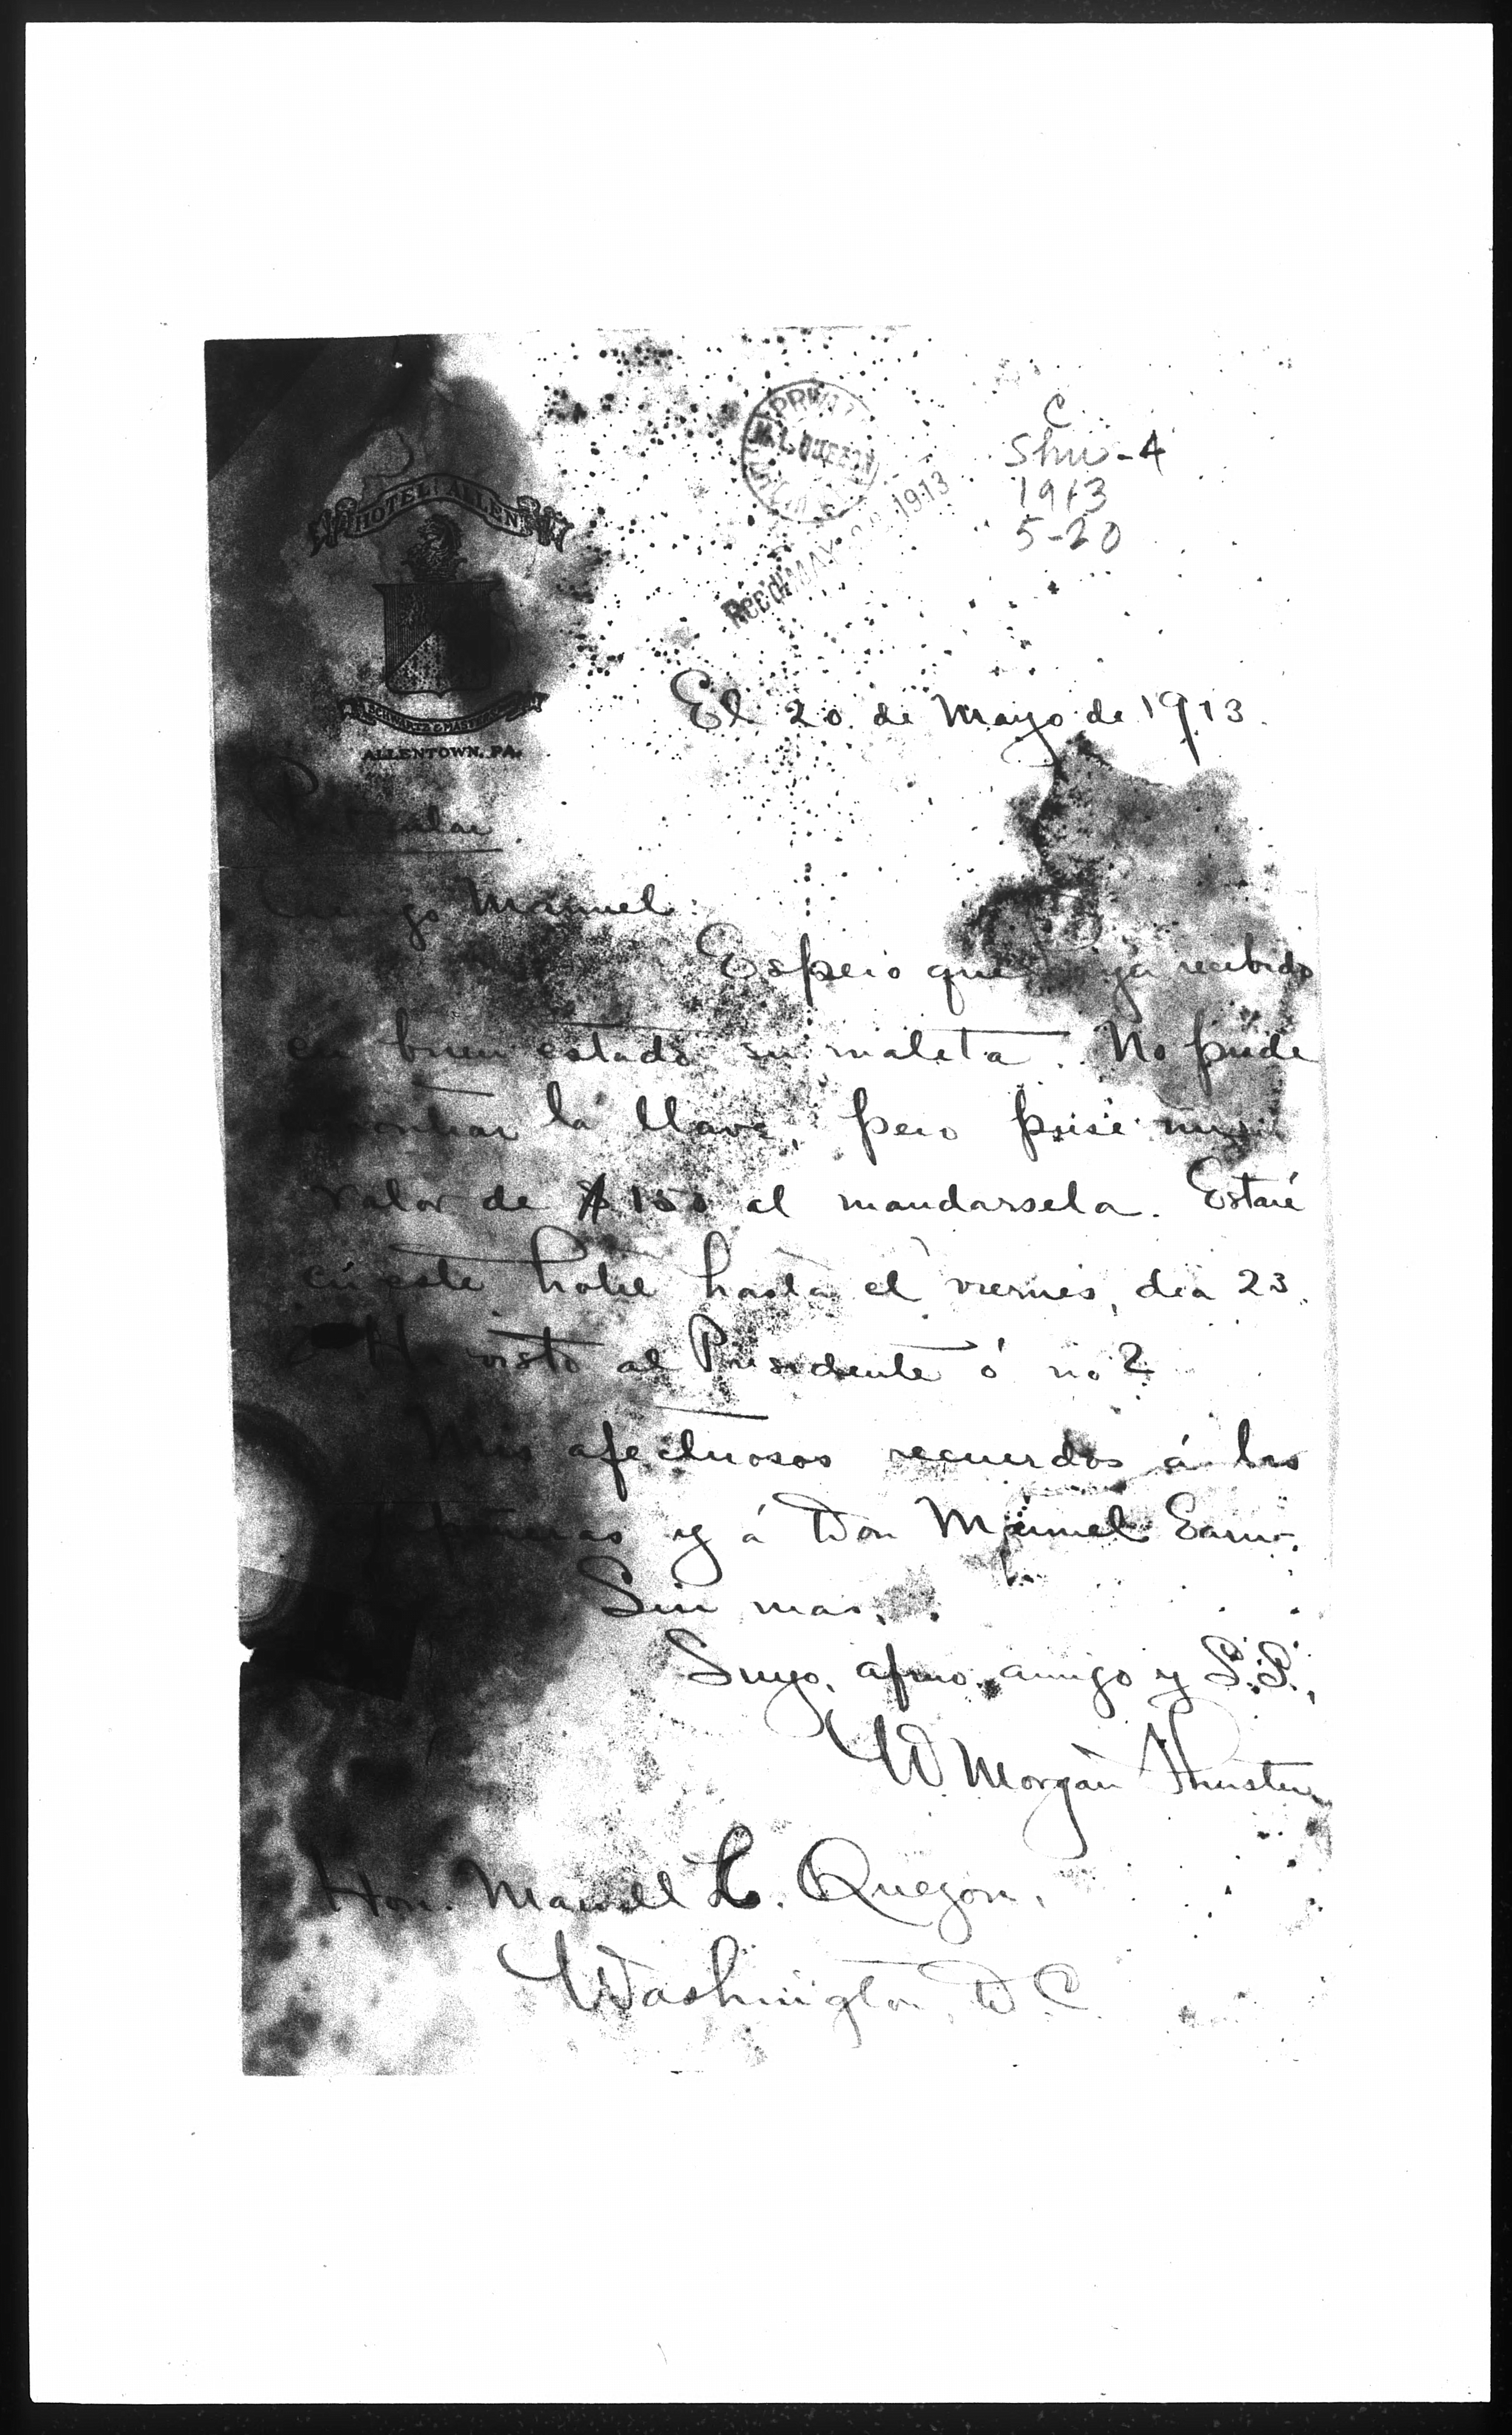 HOTEL ALLEN
ALLENTOWN, PA.
M. L. QUEZON
Rec'd MAY 1913
C
Shu-4
1913
5-20
El 20 de Mayo de 1913.
Manuel:
Espero que recibido
en buen estado su maleta. No pude
la llave, pero puse un
valor de $150 al mandarsela. Estaré
en este hotel hasta el viernes, dia 23.
visto al Presidente ó no?
Mis afectuosos recuerdos á las
y á Don Manuel Earn-
Sin mas,
Suyo, afmo. amigo y S.S.,
W Morgan Shuster
Hon. Manuel L. Quezon,
Washington, D.C.